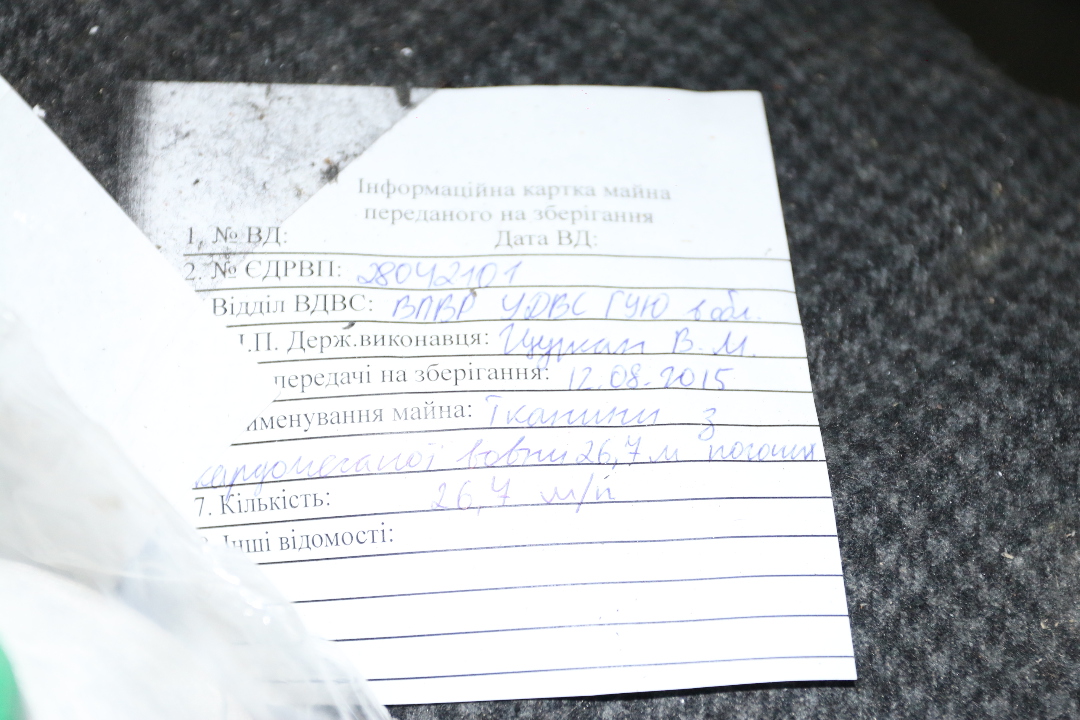 Інформаційна картка майна
переданого на зберігання
1, № ВД: Дата ВД:
2. № ЄДРВП: 28042101
Відділ ВДВС: ВПВР УДВС ГУЮ в обл.
.П. Держ.виконавця: В.М.
передачі на зберігання: 12.08.2015
йменування майна: Тканини з
вовни 26,7 м погонних
7. Кількість: 26,7 м/п
Інші відомості: